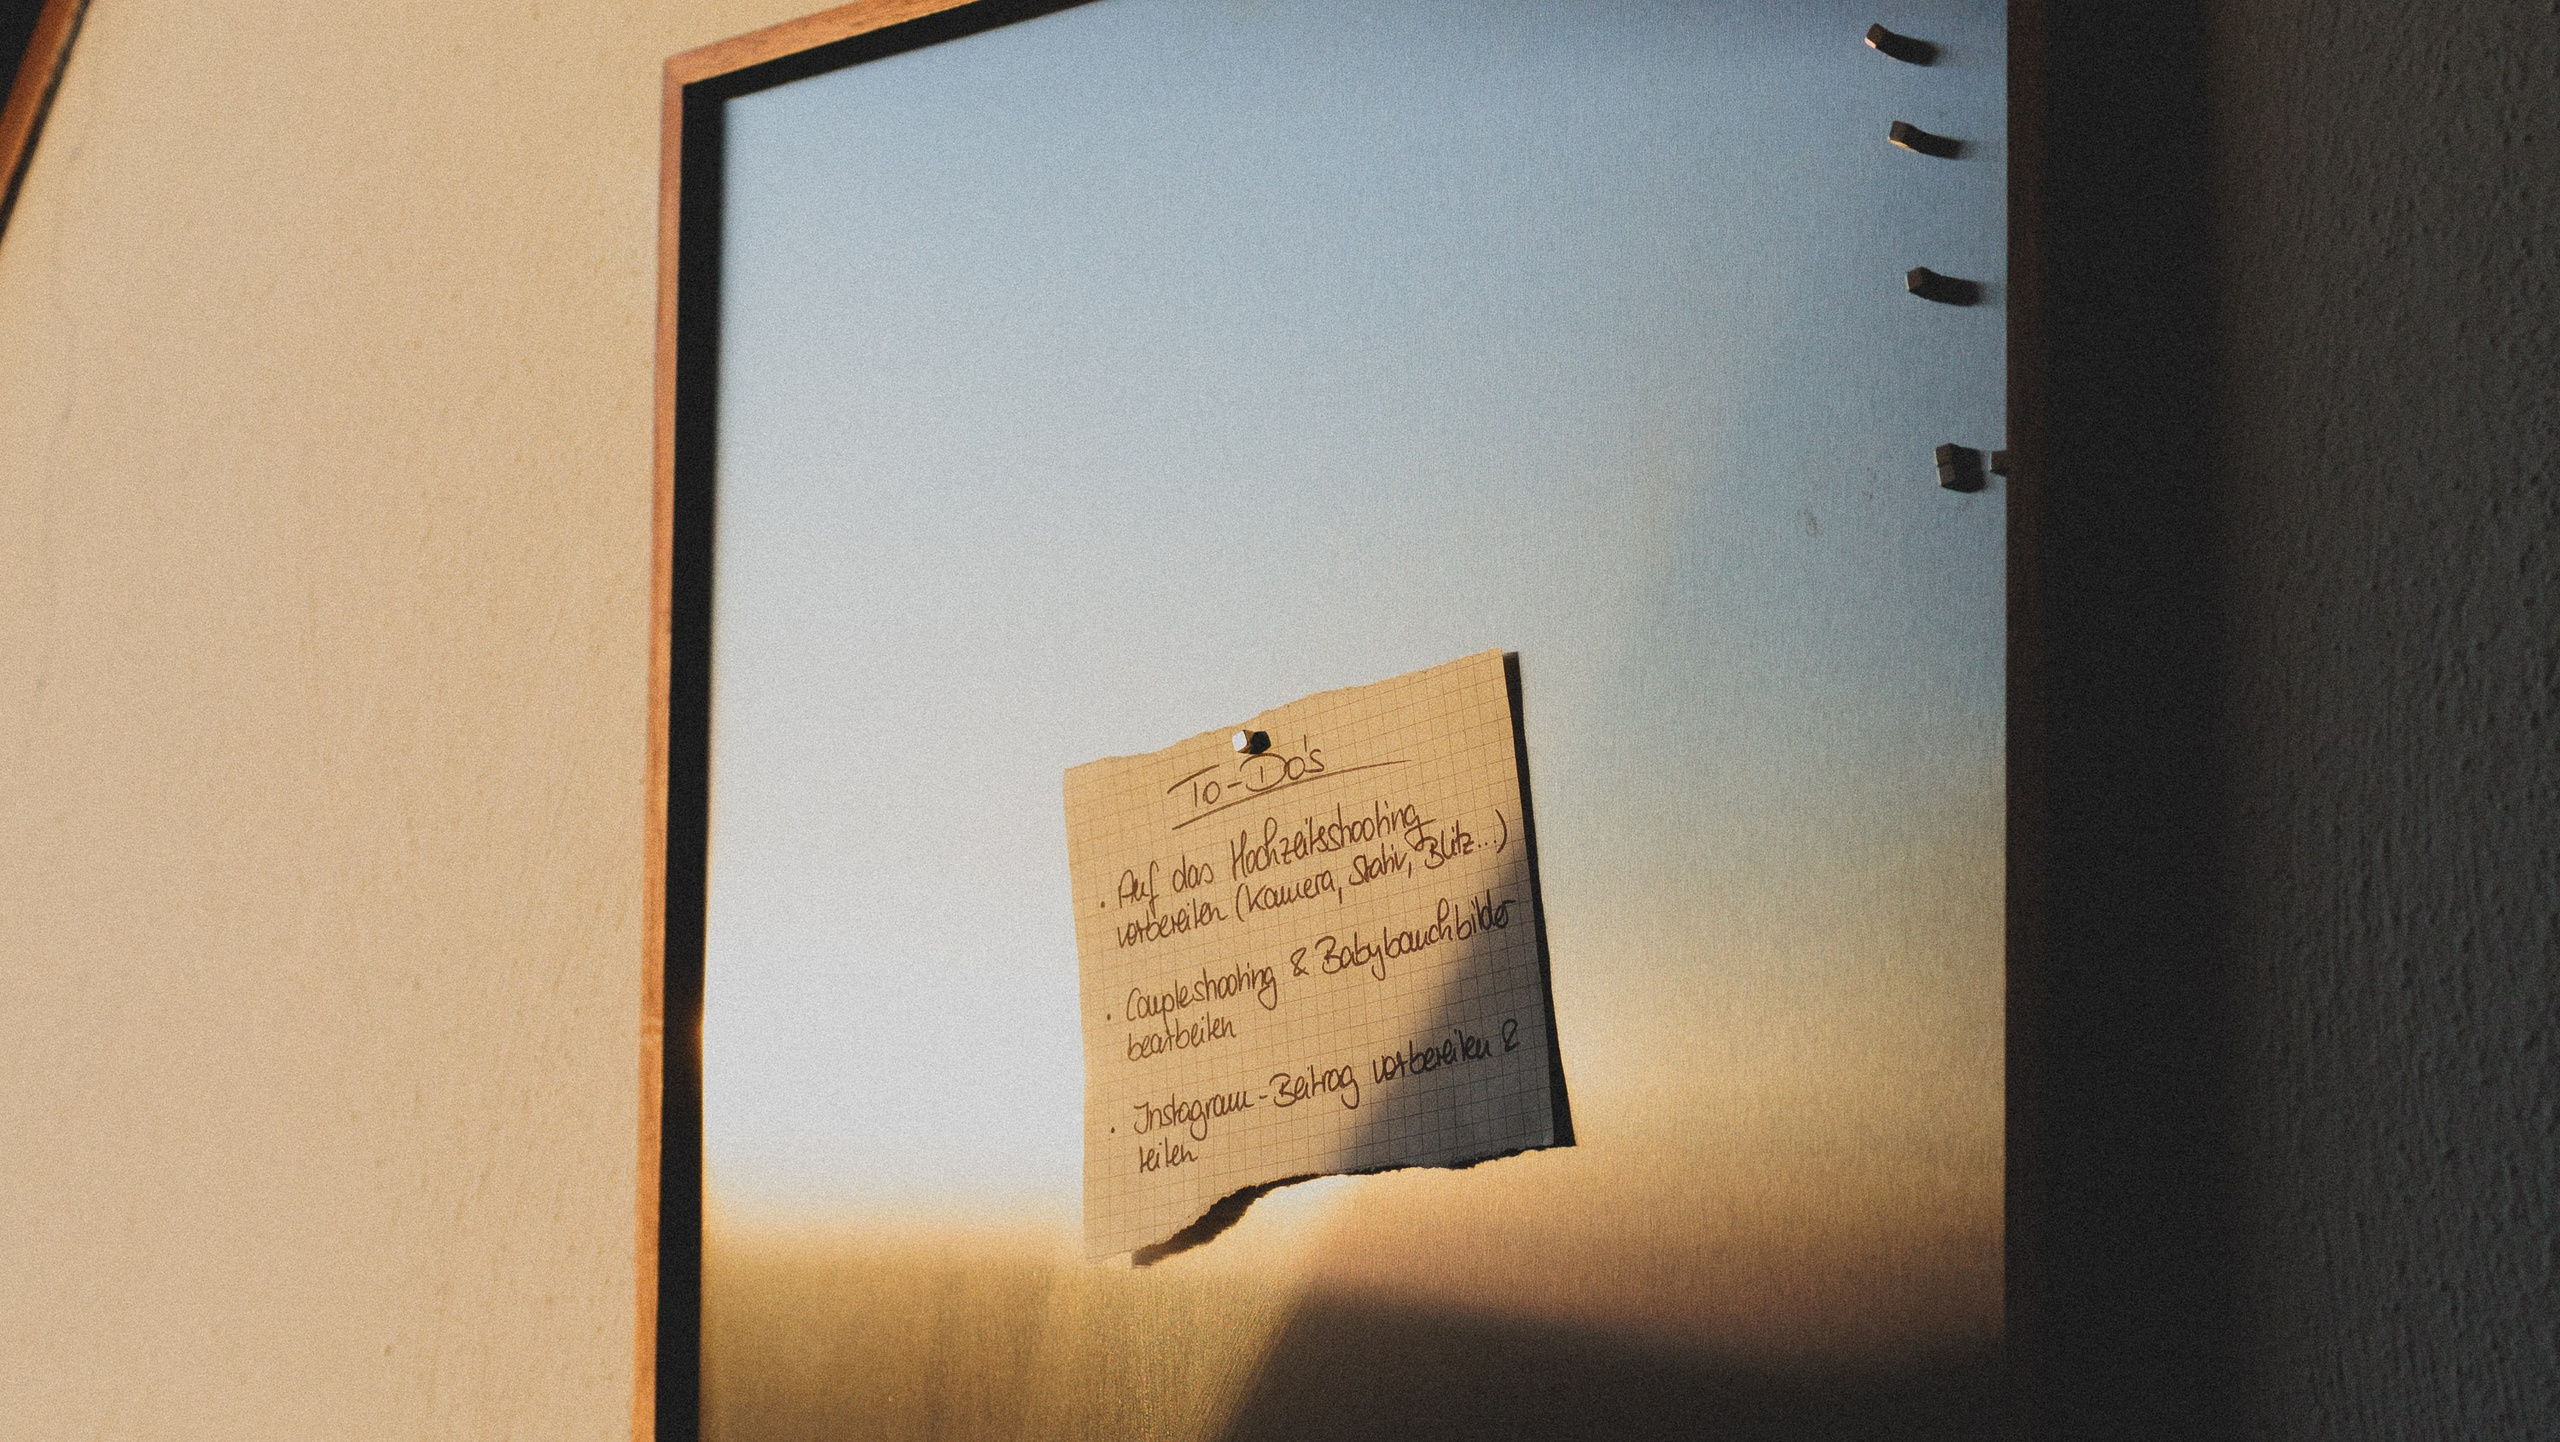 To-Do's
· Auf das Hochzeitsshooting
vorbereiten (Kamera, Stativ, Blitz...)
· Coupleshooting & Babybauchbilder
bearbeiten
· Instagram-Beitrag vorbereiten &
teilen